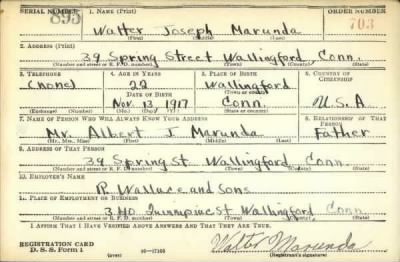 SERIAL NUMBER 1. NAME (Print) ORDER NUMBER
895 Walter Joseph Marunda 703
(First) (Middle) (Last)
2. ADDRESS (Print)
39 Spring Street Wallingford Conn.
(Number and street or R. F. D. number) (Town) (County) (State)
3. TELEPHONE 4. AGE IN YEARS 5. PLACE OF BIRTH 6. COUNTRY OF CITIZENSHIP
(none) 22 Wallingford
DATE OF BIRTH (Town or county)
Nov. 13 1917 Conn. U.S.A
(Exchange) (Number) (Mo.) (Day) (Yr.) (State or country)
7. NAME OF PERSON WHO WILL ALWAYS KNOW YOUR ADDRESS 8. RELATIONSHIP OF THAT PERSON
Mr. Albert J Marunda Father
(Mr., Mrs., Miss) (First) (Middle) (Last)
9. ADDRESS OF THAT PERSON
39 Spring St. Wallingford Conn.
(Number and street or R. F. D. number) (Town) (County) (State)
10. EMPLOYER'S NAME
R. Wallace and Sons
11. PLACE OF EMPLOYMENT OR BUSINESS
340 Quinnipiac St Wallingford Conn
(Number and street or R. F. D. number) (Town) (County) (State)
I AFFIRM THAT I HAVE VERIFIED ABOVE ANSWERS AND THAT THEY ARE TRUE.
REGISTRATION CARD
D. S. S. Form 1 (over) 16-17105 Walter Marunda